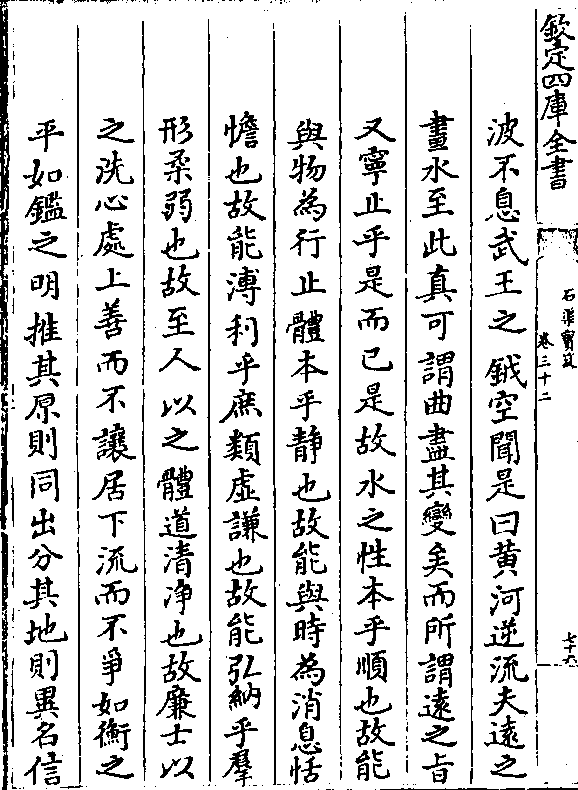 欽定四庫全書
石渠寶笈
卷三十二
七十六
波不息武王之鉞空聞是曰黄河逆流夫遠之
畫水至此真可謂曲盡其變矣而所謂遠之旨
又寧止乎是而已是故水之性本乎順也故能
與物為行止體本乎静也故能與時為消息恬
憺也故能溥利乎庶類虛謙也故能弘納乎羣
形柔弱也故至人以之體道清净也故廉士以
之洗心處上善而不讓居下流而不爭如衡之
平如鑑之明推其原則同出分其地則異名信